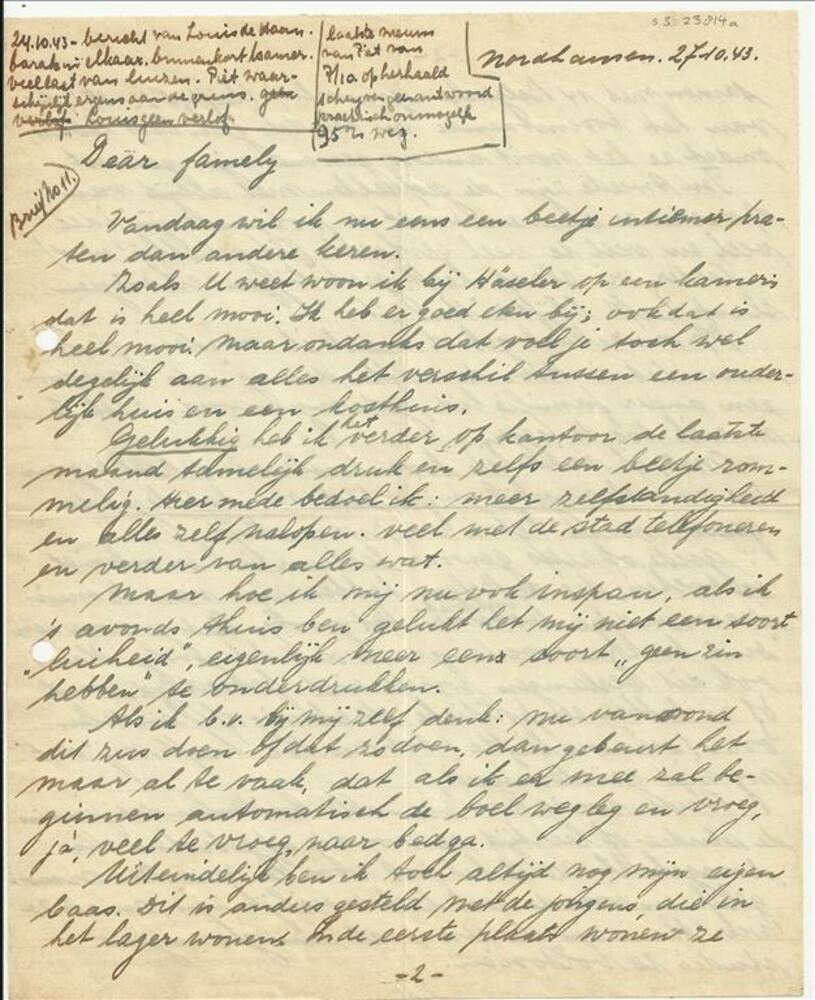 S3. 23814a
24.10.43 - bericht van Louis de Haan.
barak in elkaar. binnenkort kamer.
veel last van luizen. Piet waar-
schijnlijk ergens aan de grens. geen
verlof. Louis geen verlof.
laatste nieuws
van Piet van
7/10 op herhaald
schrijven geen antwoord
praktisch onmogelijk
95% weg.
Nordhausen. 27-10.43.
Brief No 11.
Dear famely
Vandaag wil ik nu eens een beetje intiemer pra-
ten dan andere keren.
Zoals U weet woon ik bij Häseler op een kamer;
dat is heel mooi. Ik heb er goed eten bij; ook dat is
heel mooi. Maar ondanks dat voel je toch wel
degelijk aan alles het verschil tussen een ouder-
lijk huis en een kosthuis.
Gelukkig heb ik het verder op kantoor de laatste
maand tamelijk druk en zelfs een beetje rom-
melig. Hiermede bedoel ik: meer zelfstandigheid
en alles zelf nalopen. veel met de stad telefoneren
en verder van alles wat.
Maar hoe ik mij nu ook inspan, als ik
's avonds thuis ben gelukt het mij niet een soort
"luiheid", eigenlijk meer een soort "geen zin
hebben" te onderdrukken.
Als ik b.v. bij mij zelf denk: nu vanavond
dit zus doen of dat zo doen, dan gebeurt het
maar al te vaak, dat als ik er mee zal be-
ginnen automatisch de boel wegleg en vroeg,
ja, veel te vroeg, naar bed ga.
Uiteindelijk ben ik toch altijd nog mijn eigen
baas. Dit is anders gesteld met de jongens, die in
het lager wonen. In de eerste plaats wonen ze
-2-